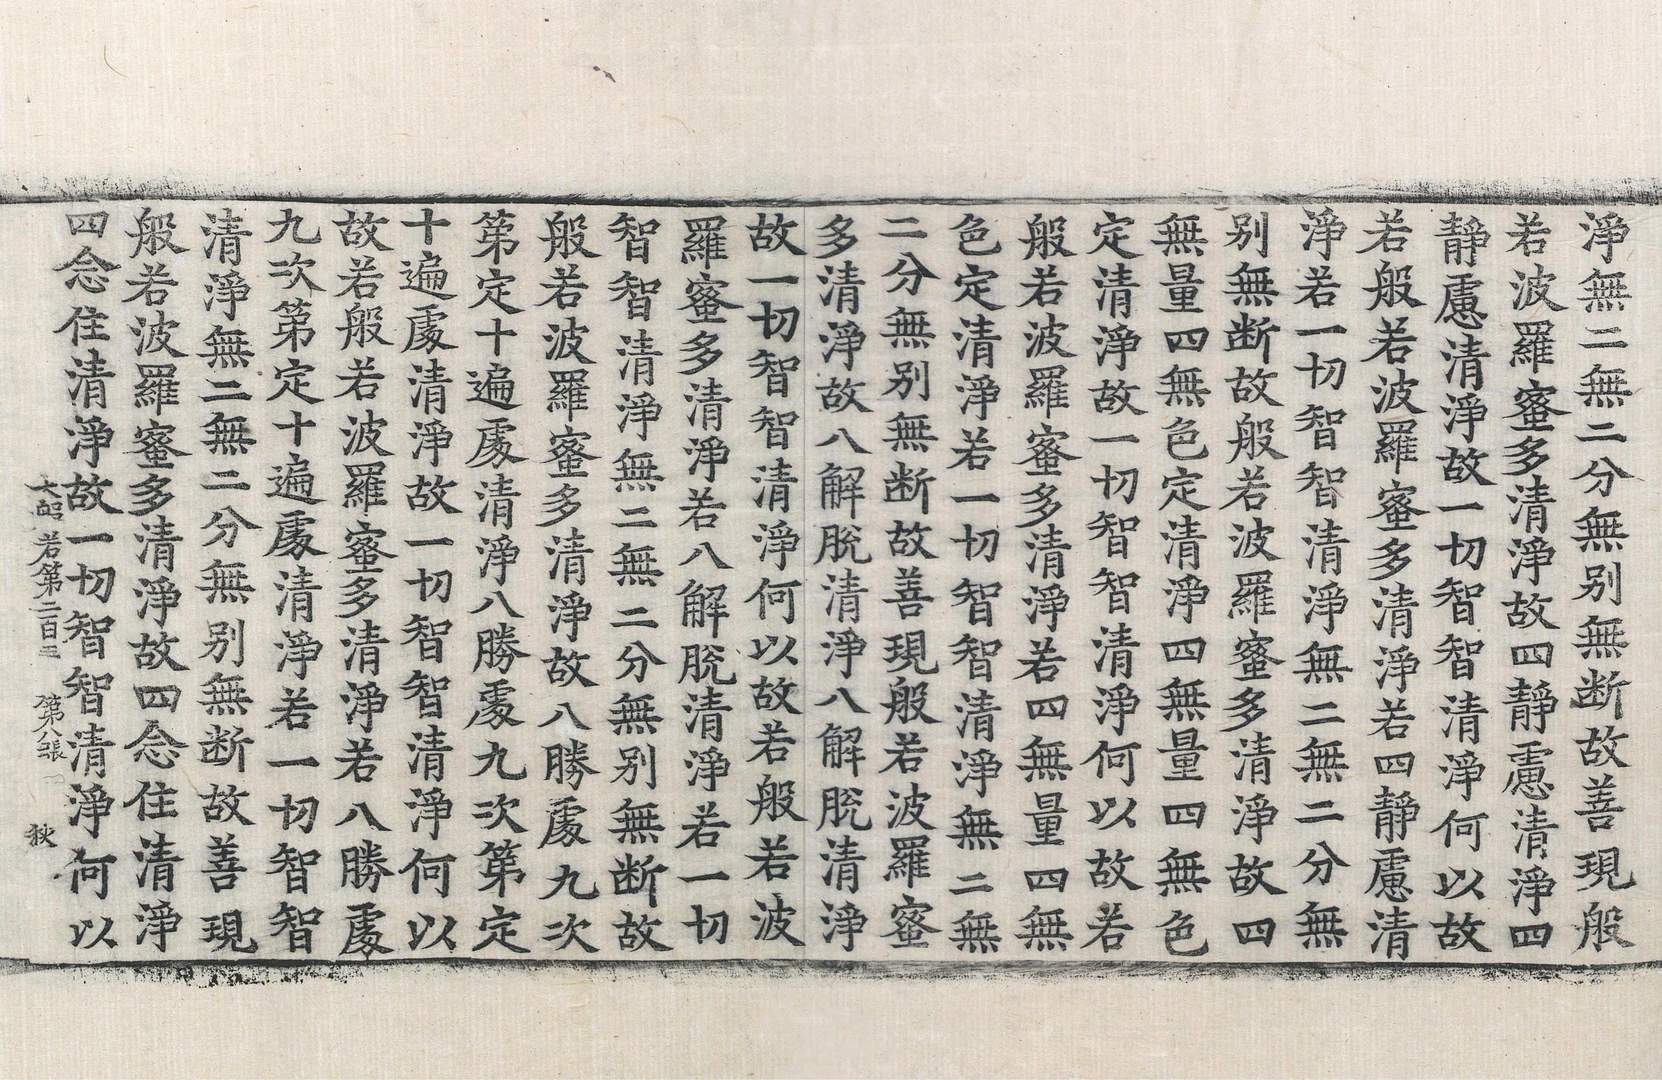 淨無二無二分無别無断故善現般
若波羅蜜多清淨故四靜慮清淨四
靜慮清淨故一切智智清淨何以故
若般若波羅蜜多清淨若四靜慮清
淨若一切智智清淨無二無二分無
别無断故般若波羅蜜多清淨故四
無量四無色定清淨四無量四無色
定清淨故一切智智清淨何以故若
般若波羅蜜多清淨若四無量四無
色定清淨若一切智智清淨無二無
二分無别無断故善現般若波羅蜜
多清淨故八解脫清淨八解脫清淨
故一切智智清淨何以故若般若波
羅蜜多清淨若八解脫清淨若一切
智智清淨無二無二分無别無断故
般若波羅蜜多清淨故八勝處九次
第定十遍處清淨八勝處九次第定
十遍處清淨故一切智智清淨何以
故若般若波羅蜜多清淨若八勝處
九次第定十遍處清淨若一切智智
清淨無二無二分無别無断故善現
般若波羅蜜多清淨故四念住清淨
四念住清淨故一切智智清淨何以
大般若第二百三 第八張 秋